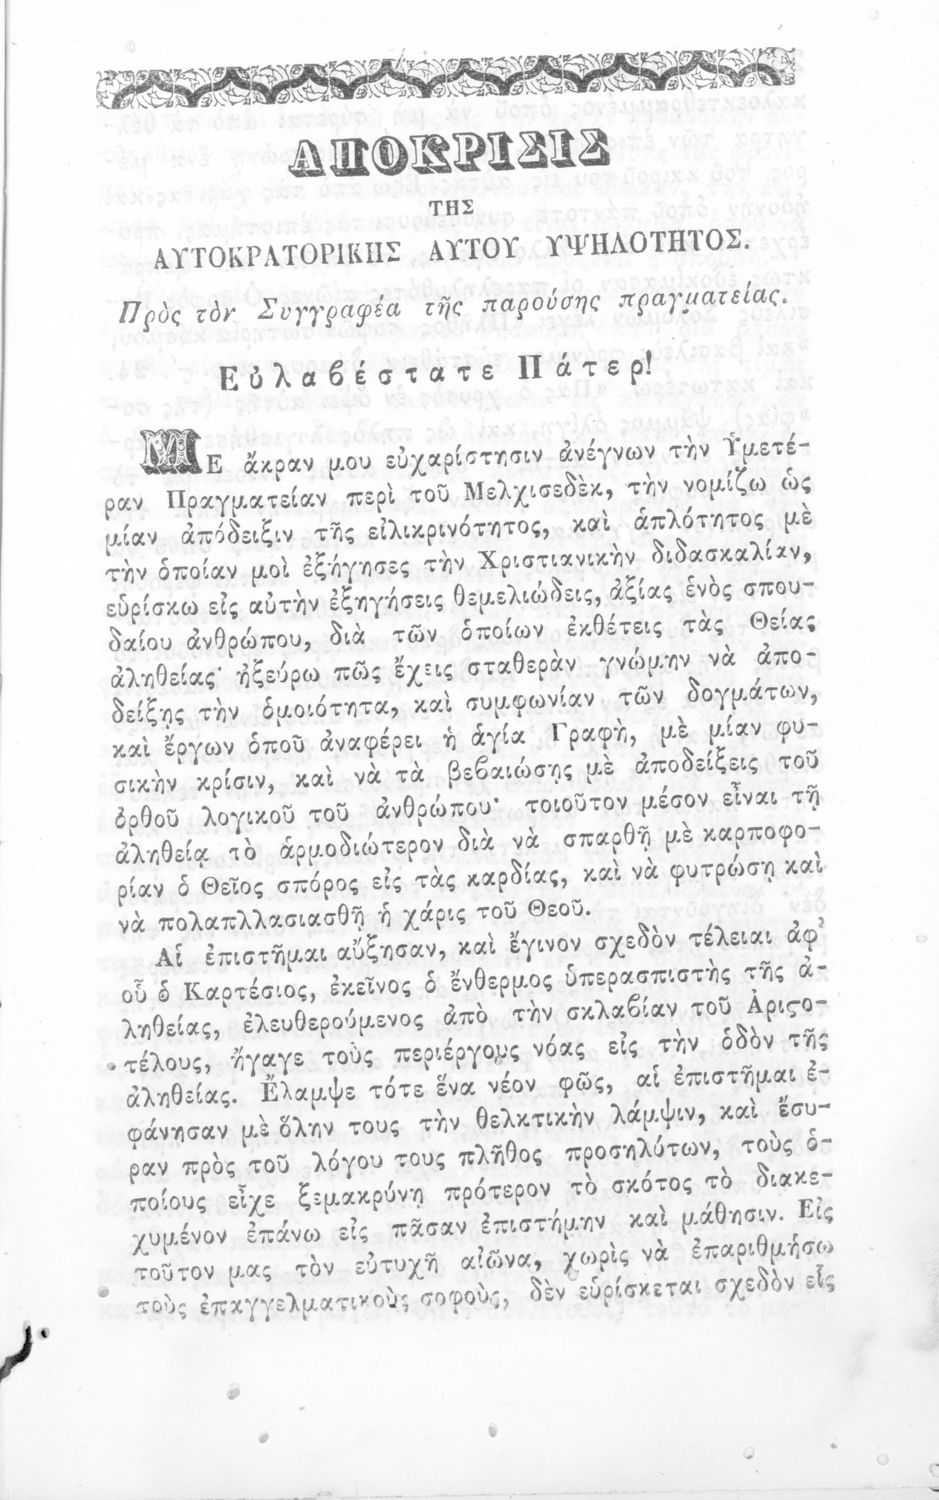 ΑΠΟΚΡΙΣΙΣ
ΤΗΣ
ΑΥΤΟΚΡΑΤΟΡΙΚΗΣ ΑΥΤΟΥ ΥΨΗΛΟΤΗΤΟΣ.
Πρὸς τὸν Συγγραφέα τῆς παρούσης πραγματείας.
Εὐλαβέστατε Πάτερ!
ΜΕ ἄκραν μου εὐχαρίστησιν ἀνέγνων τὴν Ὑμετέ-
ραν Πραγματείαν περὶ τοῦ Μελχισεδὲκ, τὴν νομίζω ὡς
μίαν ἀπόδειξιν τῆς εἰλικρινότητος, καὶ ἁπλότητος μὲ
τὴν ὁποίαν μοὶ ἐξήγησες τὴν Χριστιανικὴν διδασκαλίαν,
εὑρίσκω εἰς αὐτὴν ἐξηγήσεις θεμελιώδεις, ἀξίας ἑνὸς σπου-
δαίου ἀνθρώπου, διὰ τῶν ὁποίων ἐκθέτεις τὰς Θείας
ἀληθείας· ἠξεύρω πῶς ἔχεις σταθερὰν γνώμην νὰ ἀπο-
δείξῃς τὴν ὁμοιότητα, καὶ συμφωνίαν τῶν δογμάτων,
καὶ ἔργων ὁποῦ ἀναφέρει ἡ ἁγία Γραφὴ, μὲ μίαν φυ-
σικὴν κρίσιν, καὶ νὰ τὰ βεβαιώσῃς μὲ ἀποδείξεις τοῦ
ὀρθοῦ λογικοῦ τοῦ ἀνθρώπου· τοιοῦτον μέσον εἶναι τῇ
ἀληθείᾳ τὸ ἁρμοδιώτερον διὰ νὰ σπαρθῇ μὲ καρποφο-
ρίαν ὁ Θεῖος σπόρος εἰς τὰς καρδίας, καὶ νὰ φυτρώσῃ καὶ
νὰ πολαπλλασιασθῇ ἡ χάρις τοῦ Θεοῦ.
Αἱ ἐπιστῆμαι αὔξησαν, καὶ ἔγινον σχεδὸν τέλειαι ἀφ'
οὗ ὁ Καρτέσιος, ἐκεῖνος ὁ ἔνθερμος ὑπερασπιστὴς τῆς ἀ-
ληθείας, ἐλευθερούμενος ἀπὸ τὴν σκλαβίαν τοῦ Ἀριϛο-
τέλους, ἤγαγε τοὺς περιέργους νόας εἰς τὴν ὁδὸν τῆς
ἀληθείας. Ἔλαμψε τότε ἕνα νέον φῶς, αἱ ἐπιστῆμαι ἐ-
φάνησαν μὲ ὅλην τους τὴν θελκτικὴν λάμψιν, καὶ ἔσυ-
ραν πρὸς τοῦ λόγου τους πλῆθος προσηλύτων, τοὺς ὁ-
ποίους εἶχε ξεμακρύνῃ πρότερον τὸ σκότος τὸ διακε-
χυμένον ἐπάνω εἰς πᾶσαν ἐπιστήμην καὶ μάθησιν. Εἰς
τοῦτον μας τὸν εὐτυχῆ αἰῶνα, χωρὶς νὰ ἐπαριθμήσω
τοὺς ἐπαγγελματικοὺς σοφοὺς, δὲν εὑρίσκεται σχεδὸν εἰς